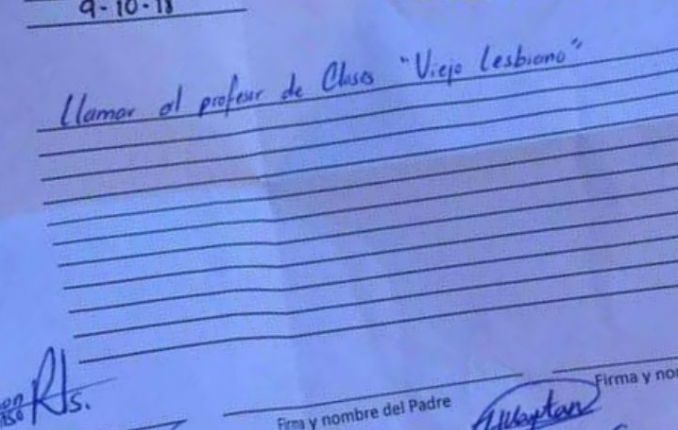 9-10-18
Llamar al profesor de Clases "Viejo Lesbiano"
Firma y nombre del Padre
Firma y no